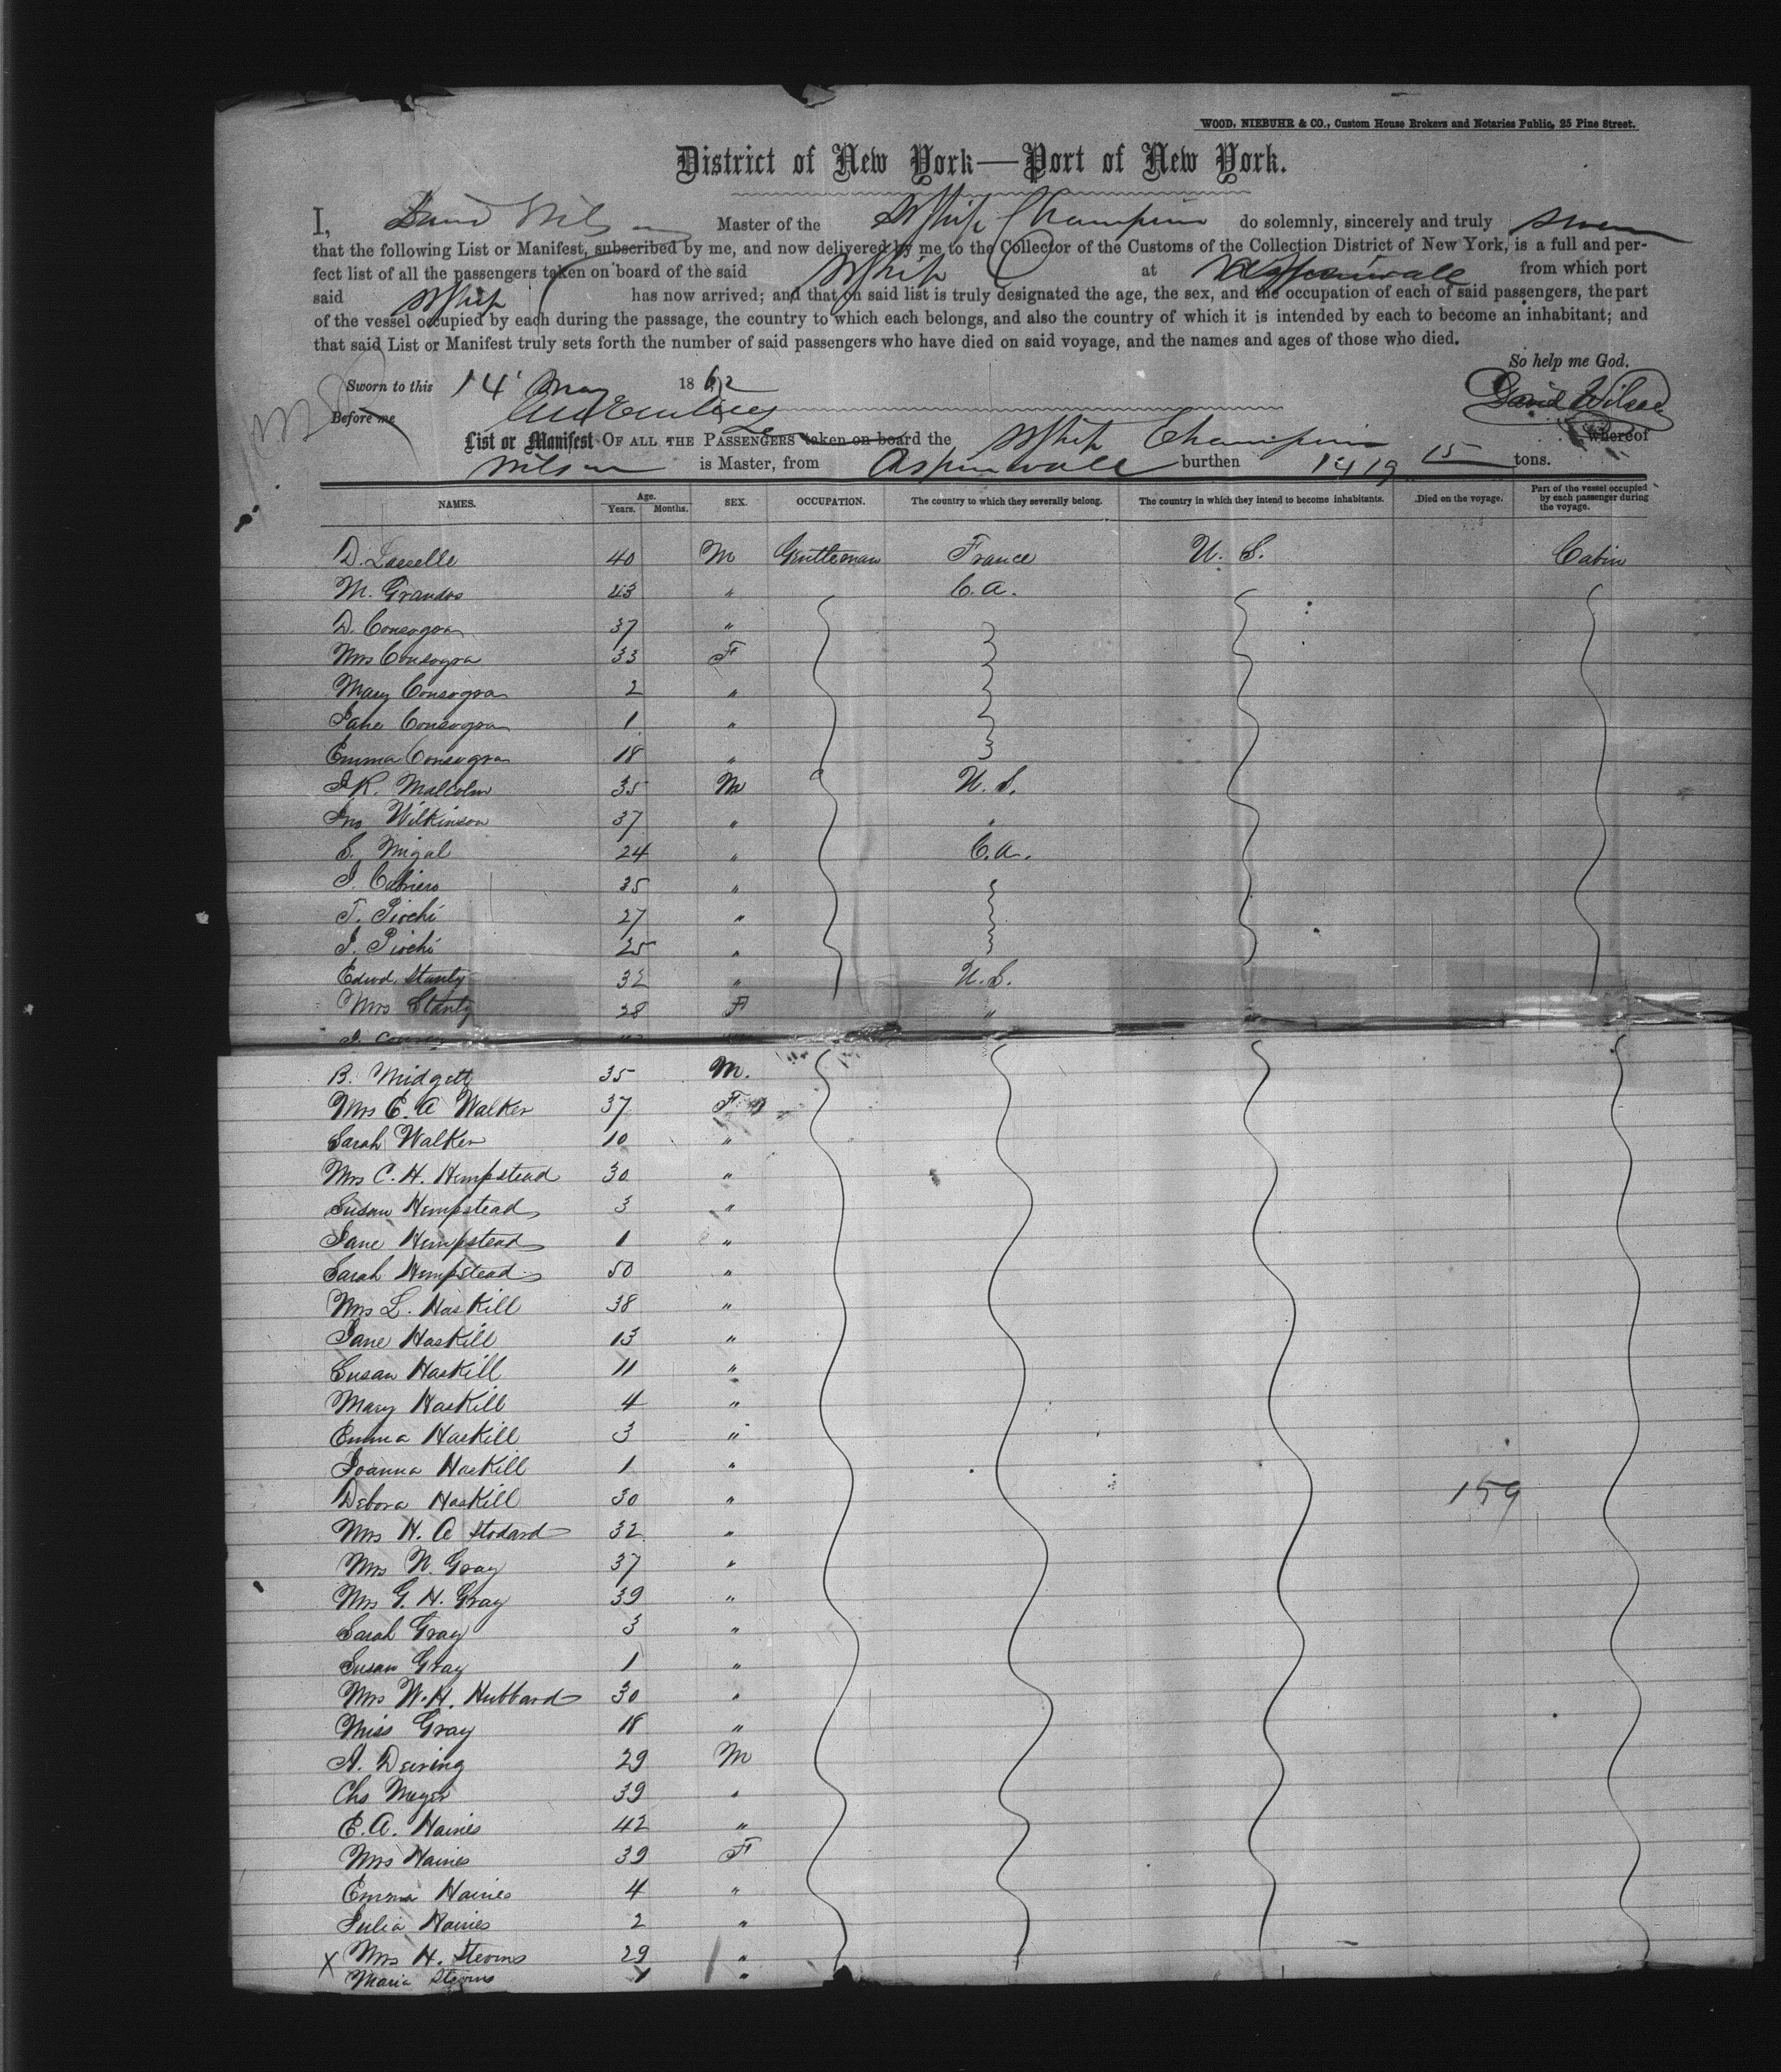 WOOD, NIEBUHR & CO., Custom House Brokers and Notaries Public, 25 Pine Street.
District of New York—Port of New York.
I, David Wilson Master of the S Ship Champion do solemnly, sincerely and truly swear
that the following List or Manifest, subscribed by me, and now delivered by me to the Collector of the Customs of the Collection District of New York, is a full and per-
fect list of all the passengers taken on board of the said S Ship at Aspinwall from which port
said S Ship has now arrived; and that on said list is truly designated the age, the sex, and the occupation of each of said passengers, the part
of the vessel occupied by each during the passage, the country to which each belongs, and also the country of which it is intended by each to become an inhabitant; and
that said List or Manifest truly sets forth the number of said passengers who have died on said voyage, and the names and ages of those who died.
So help me God.
Sworn to this 14 May 1862
David Wilson
Before me
List or Manifest OF ALL THE PASSENGERS taken on board the S Ship Champion whereof
Wilson is Master, from Aspinwall burthen 1419 15 tons.
NAMES. Age. Years. Months. SEX. OCCUPATION. The country to which they severally belong. The country in which they intend to become inhabitants. Died on the voyage. Part of the vessel occupied by each passenger during the voyage.
D. Lasselle 40 M Gentleman France U. S. Cabin
M. Grandos 43 " C. A.
D. Consogra 37 "
Mrs Consogra 33 F
Mary Consogra 2 "
Jane Consogra 1 "
Emma Consogra 18 "
J R. Malcolm 35 M U. S.
Jno Wilkinson 37 " "
S. Migal 24 " C. A.
J. Cabriero 35 "
T. Piochi 27 "
J. Piochi 25 "
Edwd. Stanty 32 " U. S.
Mrs Stanty 28 F "
B. Midgett 35 M.
Mrs E. A Walker 37 F
Sarah Walker 10 "
Mrs C. H. Hempstead 30 "
Susan Hempstead 3 "
Jane Hempstead 1 "
Sarah Hempstead 50 "
Mrs L. Haskill 38 "
Jane Haskill 13 "
Susan Haskill 11 "
Mary Haskill 4 "
Emma Haskill 3 "
Joanna Haskill 1 "
Debora Haskill 30 " 159
Mrs H. A Stodard 32 "
Mrs N. Gray 37 "
Mrs G. H. Gray 39 "
Sarah Gray 3 "
Susan Gray 1 "
Mrs W. H. Hubbard 30 "
Miss Gray 18 "
A. Deering 29 M
Chs Meyer 39 "
E. A. Haines 42 "
Mrs Haines 39 F
Emma Haines 4 "
Julia Haines 2 "
X Mrs H. Stevens 29 "
Maria Stevens 1 "